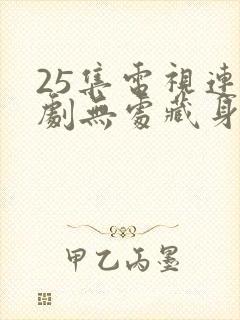 25集電視連
劇無處藏身
甲乙丙墨